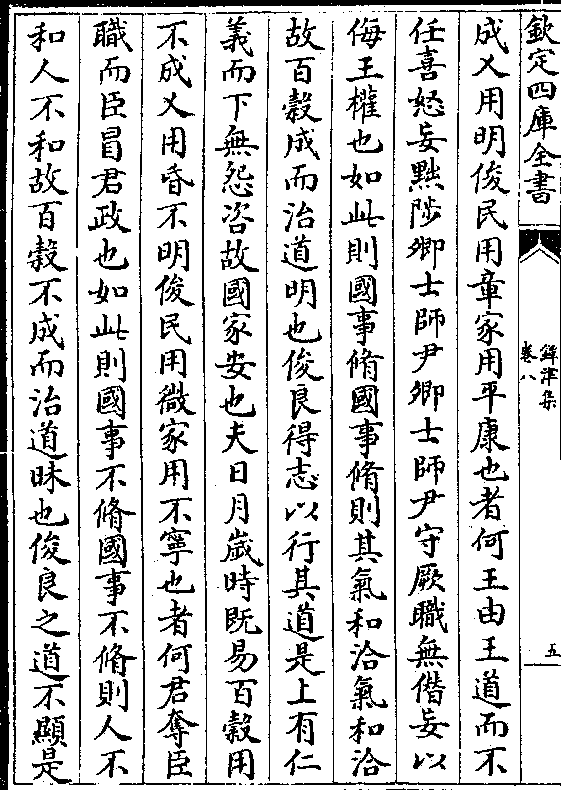 欽定四庫全書
鐔津集
卷八
五
成乂用明俊民用章家用平康也者何王由王道而不
任喜怒妄黜陟卿士師尹卿士師尹守厥職無僭妄以
侮王權也如此則國事脩國事脩則其氣和洽氣和洽
故百穀成而治道明也俊良得志以行其道是上有仁
義而下無怨咨故國家安也夫日月嵗時既易百穀用
不成乂用昏不明俊民用微家用不寧也者何君奪臣
職而臣冒君政也如此則國事不脩國事不脩則人不
和人不和故百穀不成而治道昧也俊良之道不顯是